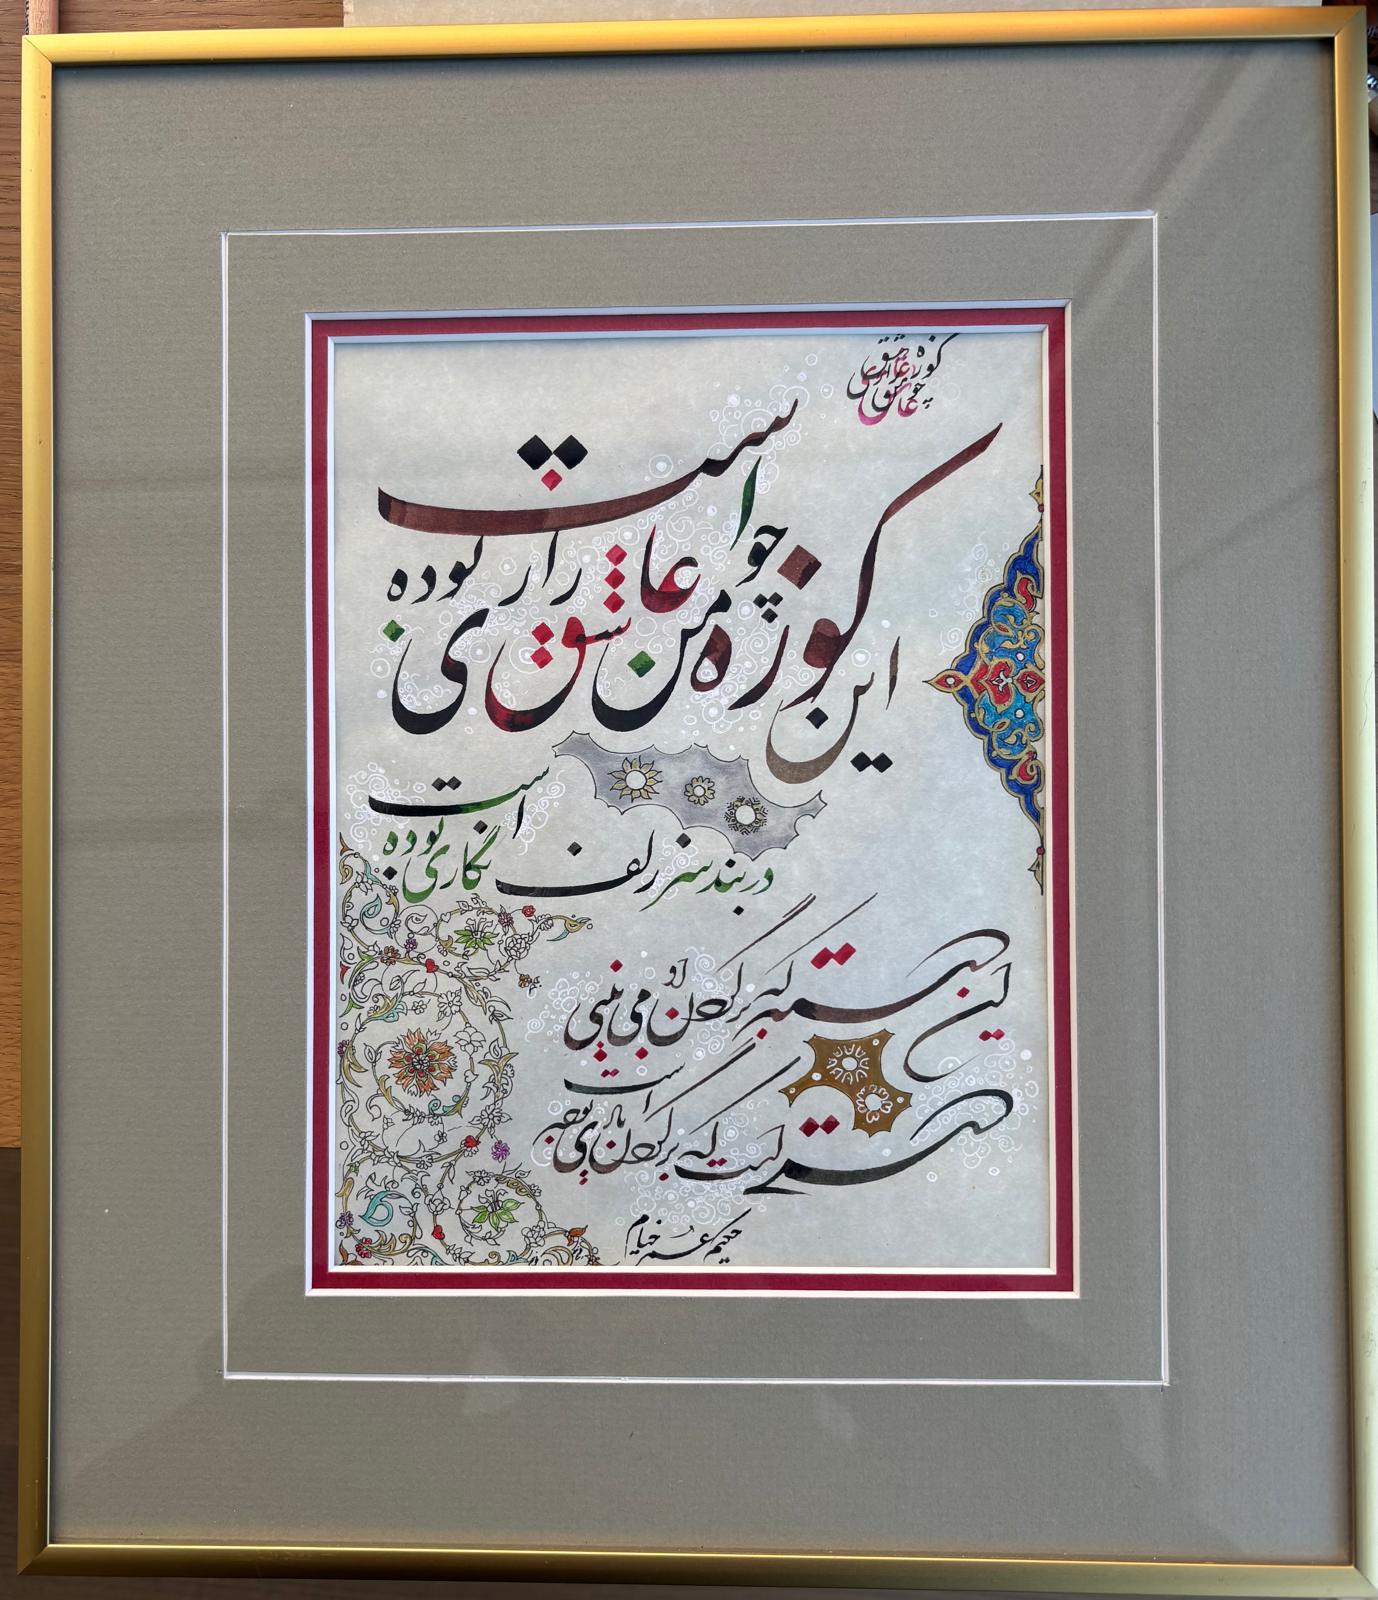 کوزه چو عاشق زاری
این کوزه چو من عاشق زاری بوده است
در بند سر زلف نگاری بوده است
این دسته که بر گردن او می بینی
دستی است که بر گردن یاری بوده است
حکیم عمر خیام